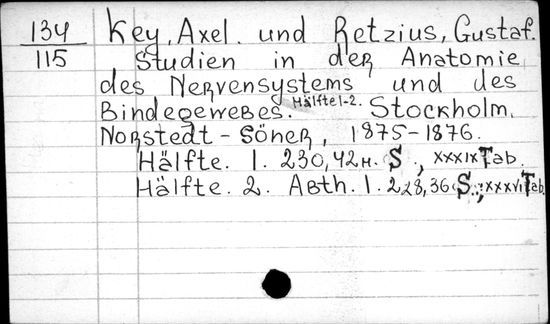 134 Key, Axel. und Retzius, Gustaf.
115 Studien in der Anatomie
des Nervensystems und des
Bindegewebes. Hälfte 1-2. Stockholm,
Norstedt-Söner, 1875-1876.
Hälfte. 1. 230, 42н. S., XXXIX Tab.
Hälfte. 2. Abth. 1. 228, 36 S., XXXVI Tab.